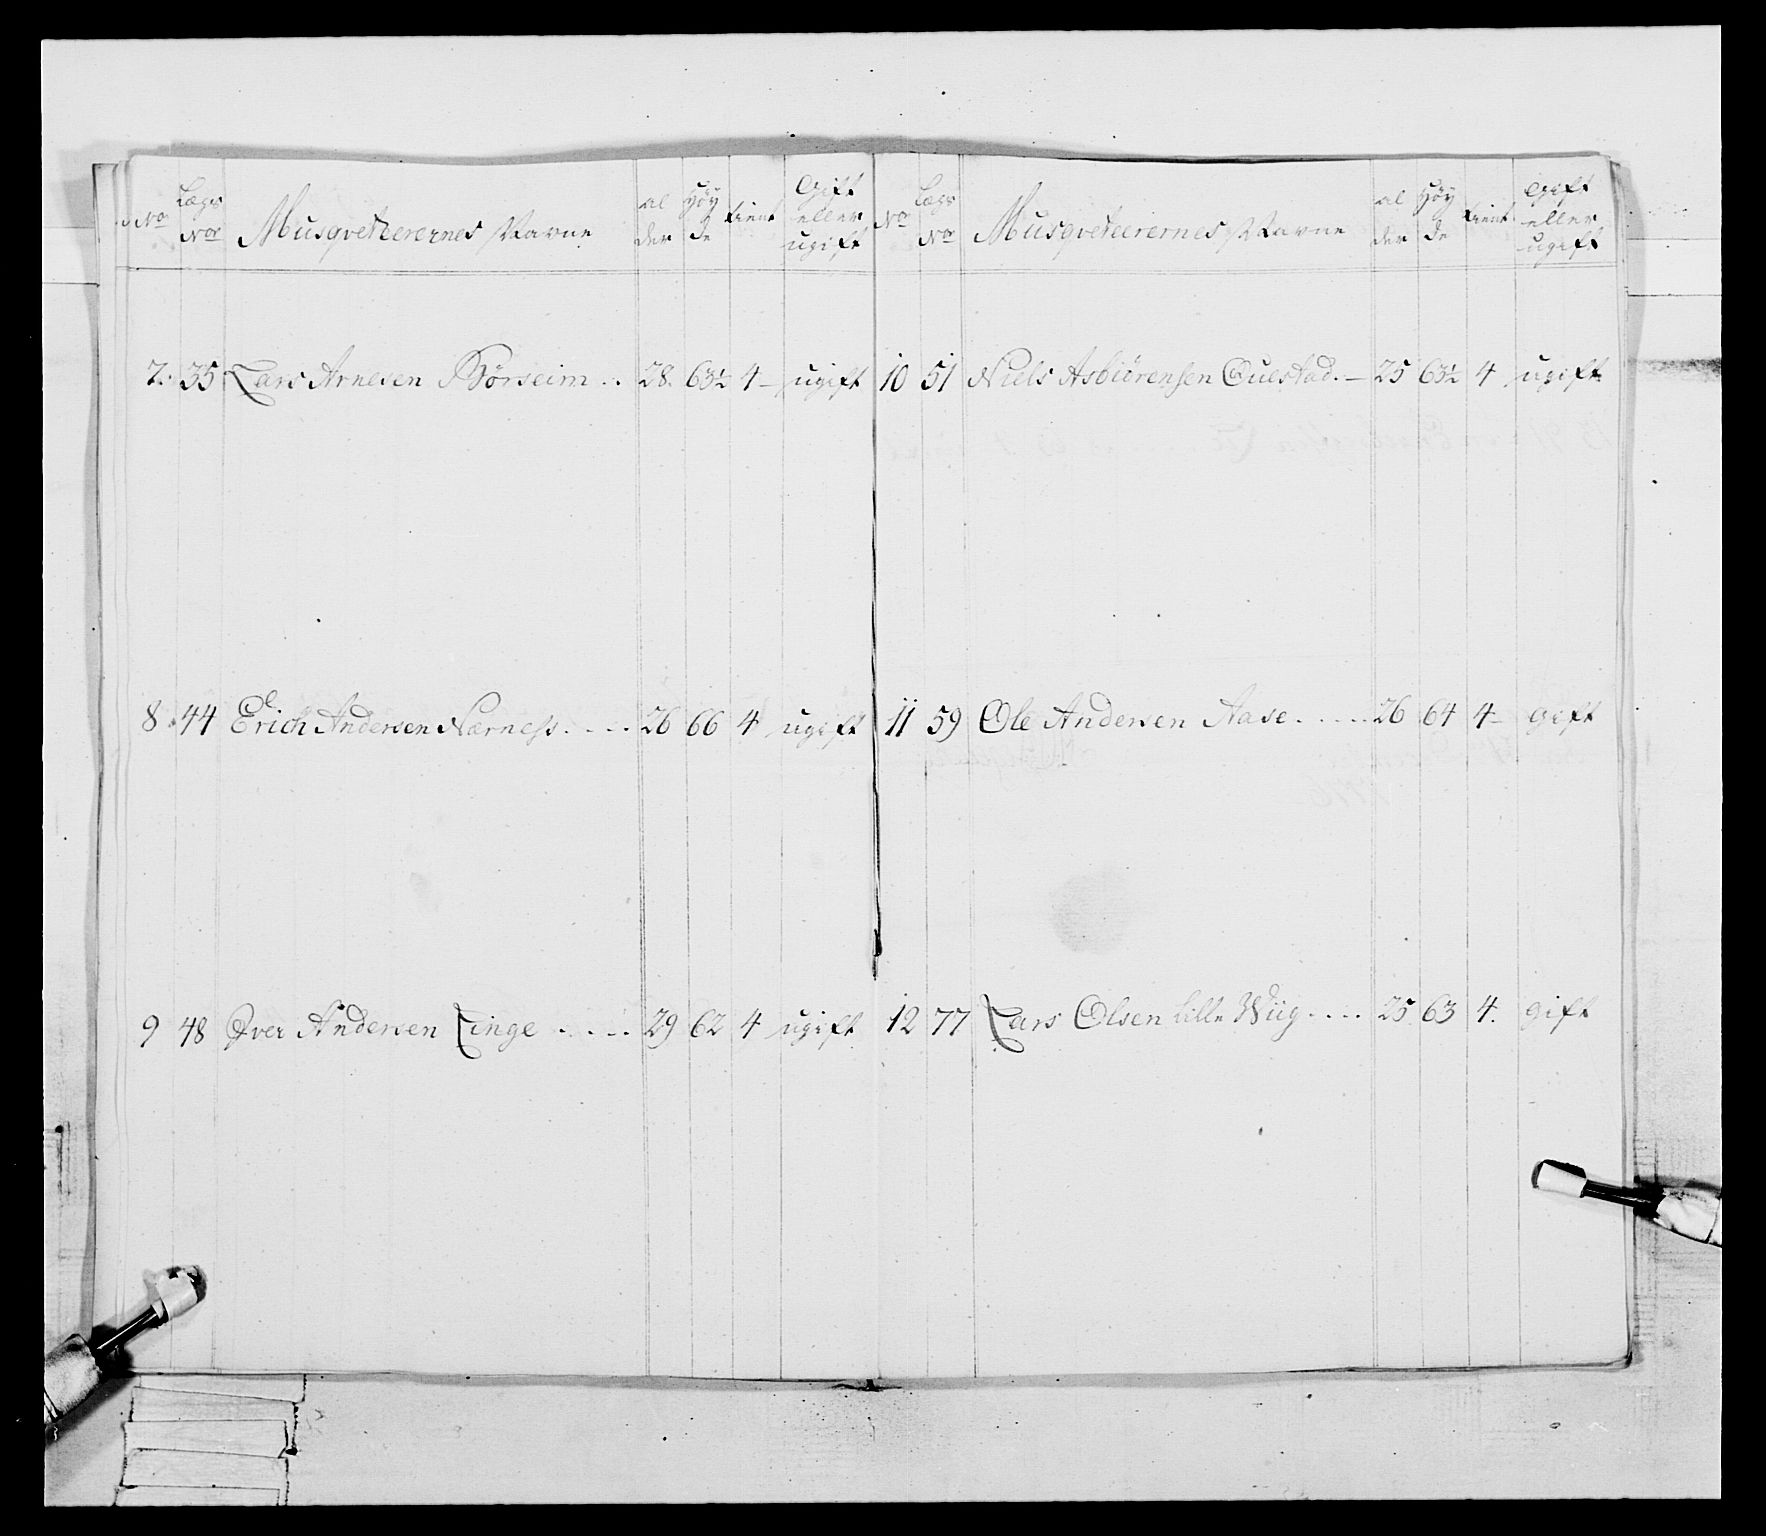 No Lægs No Musqveteerernes Navne al der Höy de tient Gift eller ugift
7. 35 Lars Arnesen Börseim . . 28. 63½ 4 – ugift
8. 44 Erich Andersen Nærness . . . . 26 66 4 ugift
9 48 Iver Andersen Linge . . . . . 29 62 4 ugift
No Lægs No Musqveteerernes Navne al der Höy de tient Gift eller ugift
10 51 Niels Asbiörensen Ouestad . – 25 63½ 4 ugift
11 59 Ole Andersen Aase . . . . . 26 64 4 – gift
12 77 Lars Olsen lille Wiig . . . . 25 63 4. gift